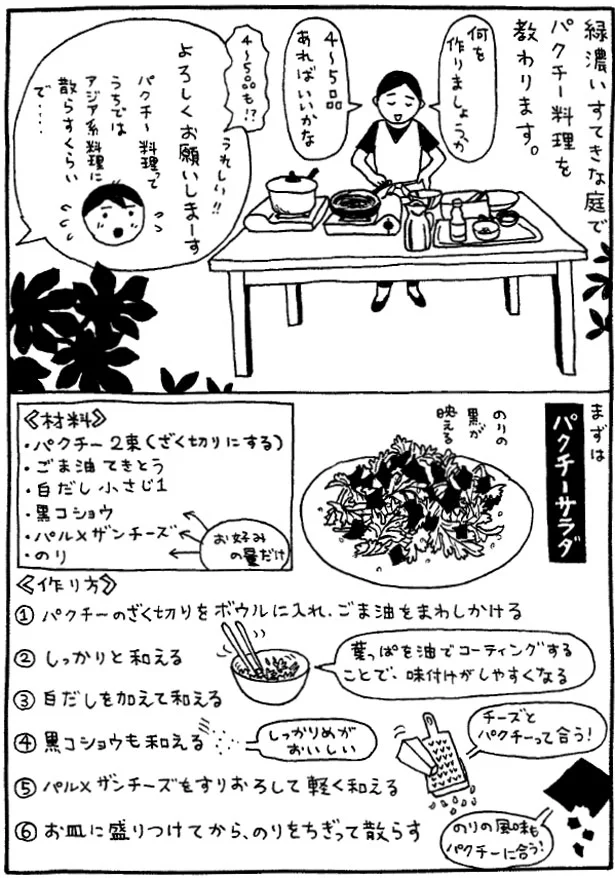 緑濃いすてきな庭で
パクチー料理を
教わります。
何を
作りましょうか
4〜5品
あればいいかな
4〜5品も!?
うれしい!!
よろしくお願いしまーす
パクチー料理って
うちでは
アジア系料理に
散らすくらい
で‥‥
まずは
パクチーサラダ
のりの
黒が
映える
≪材料≫
・パクチー 2束(ざく切りにする)
・ごま油 てきとう
・白だし 小さじ1
・黒コショウ
・パルメザンチーズ
・のり
お好み
の量だけ
≪作り方≫
① パクチーのざく切りをボウルに入れ、ごま油をまわしかける
② しっかりと和える
葉っぱを油でコーティングする
ことで、味付けがしやすくなる
③ 白だしを加えて和える
④ 黒コショウも和える
しっかりめが
おいしい
チーズと
パクチーって合う!
⑤ パルメザンチーズをすりおろして軽く和える
⑥ お皿に盛りつけてから、のりをちぎって散らす
のりの風味も
パクチーに合う!